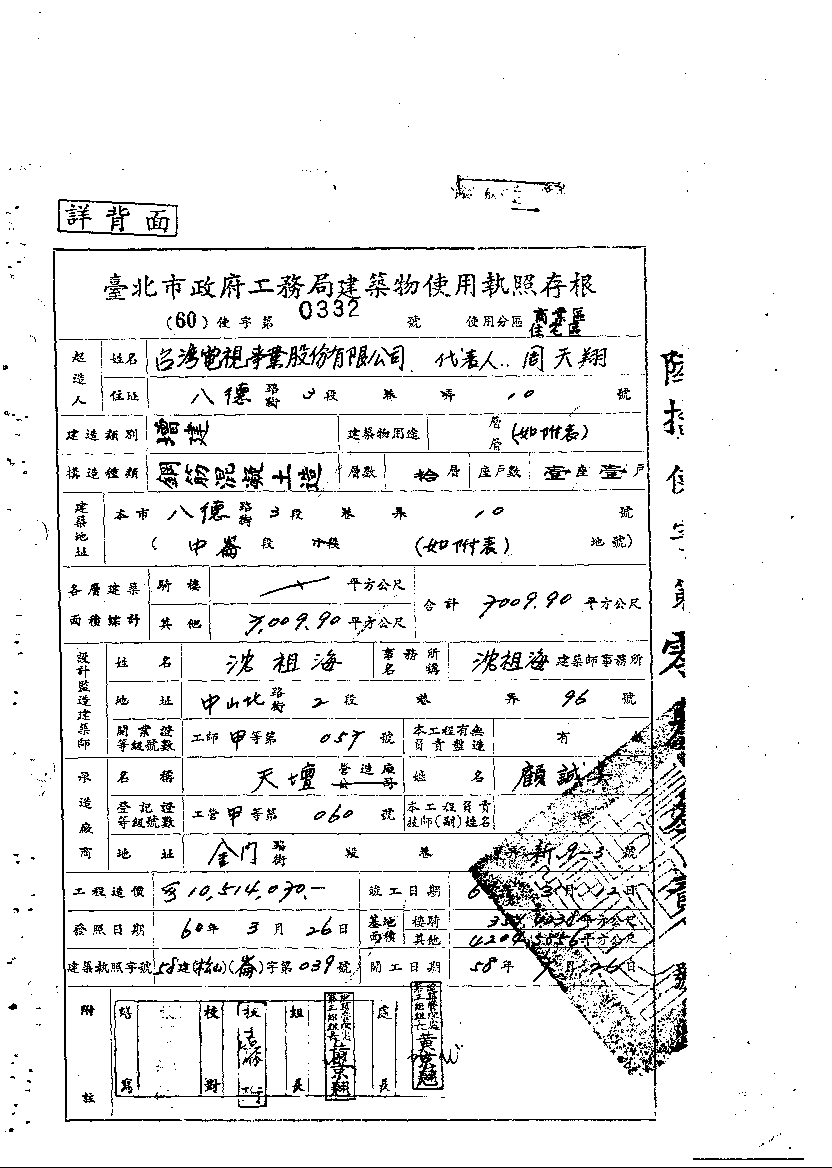 詳背面
臺北市政府工務局建築物使用執照存根
(60)使字第 0332 號 使用分區 商業區 住宅區
起造人 姓名 台灣電視事業股份有限公司 代表人:周天翔
住址 八德 路街 3段 巷 弄 10 號
建造類別 增建 建築物用途 層層 (如附表)
構造種類 鋼筋混凝土造 層數 拾層 座戶數 壹座壹戶
建築地址 本市 八德 路街 3段 巷 弄 10 號
( 中崙 段 小段 (如附表) 地號)
各層建築面積總計 騎樓 平方公尺 合計 7009.90 平方公尺
其他 7,009.90 平方公尺
設計監造建築師 姓名 沈祖海 事務所名稱 沈祖海 建築師事務所
地址 中山北 路街 2段 巷 弄 96 號
開業證等級號數 工師 甲等第 057 號 本工程有無負責監造 有
承造廠商 名稱 天壇 營造廠公司 姓名 顧誠
登記證等級號數 工營 甲等第 060 號 本工程負責技師(副)姓名
地址 金門 路街 段 巷 新 9-3 號
工程造價 10,514,030.- 竣工日期 月 日
發照日期 60年 3月 26日 基地面積 騎樓 平方公尺
其他 平方公尺
建築執照字號 58建(松山)(崙)字第039號 開工日期 58年 月 26日
附註 繕寫 校對 組長 處長
陸拾使字第零